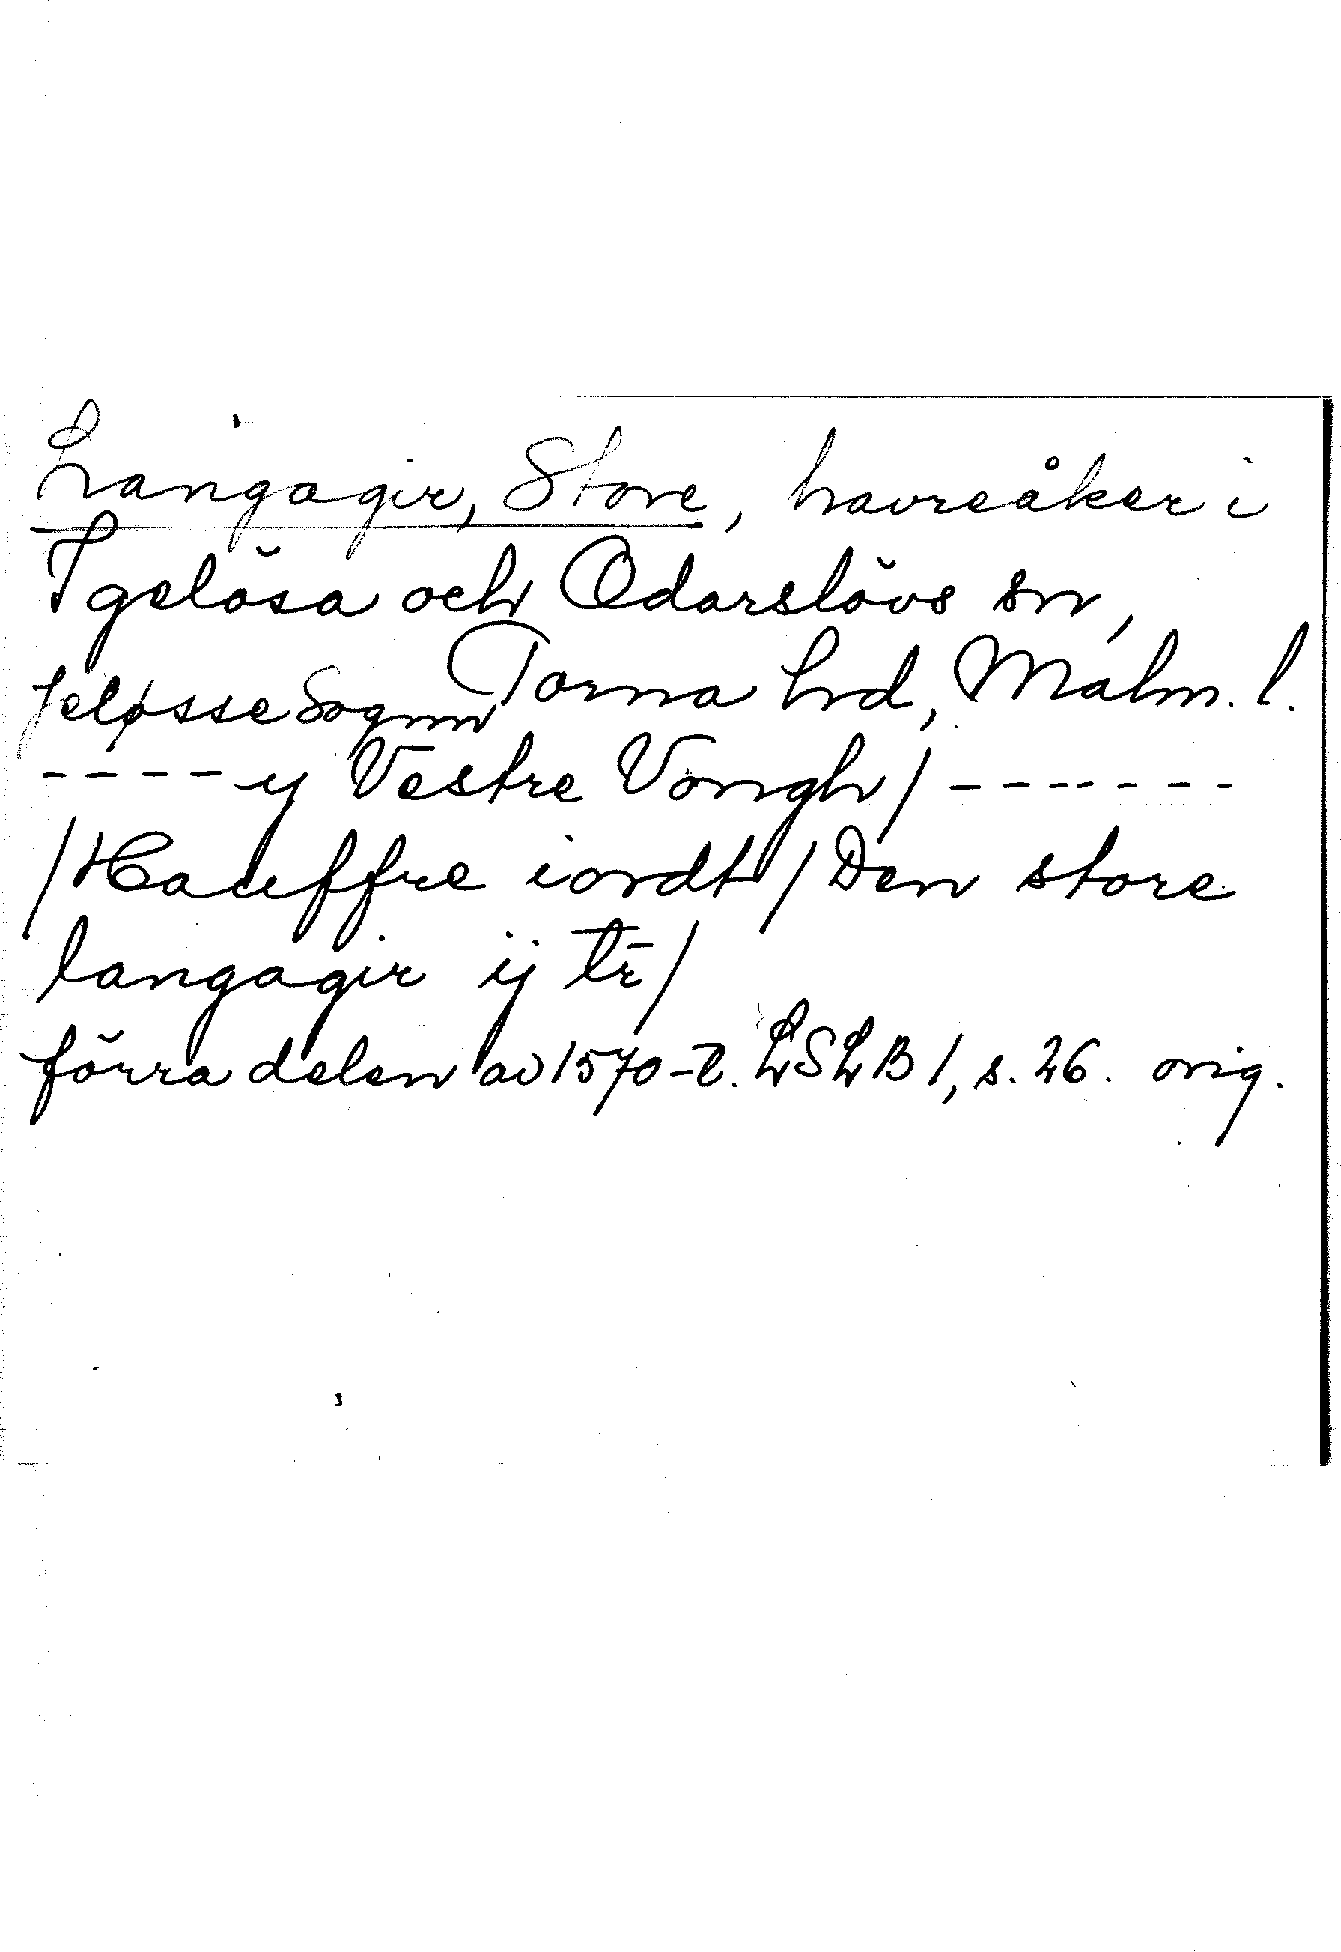 Langagir, Store, havreåker i
Igelösa och Odarslövs sn,
Torna hd, Malm. l.
Jeløsse Sognn
---- y Vestre Vongh / ------
/ Hauffre iordt / Den store
langagir ij tr̄ /
förra delen av 1570-t. LSLB 1, s. 26. orig.